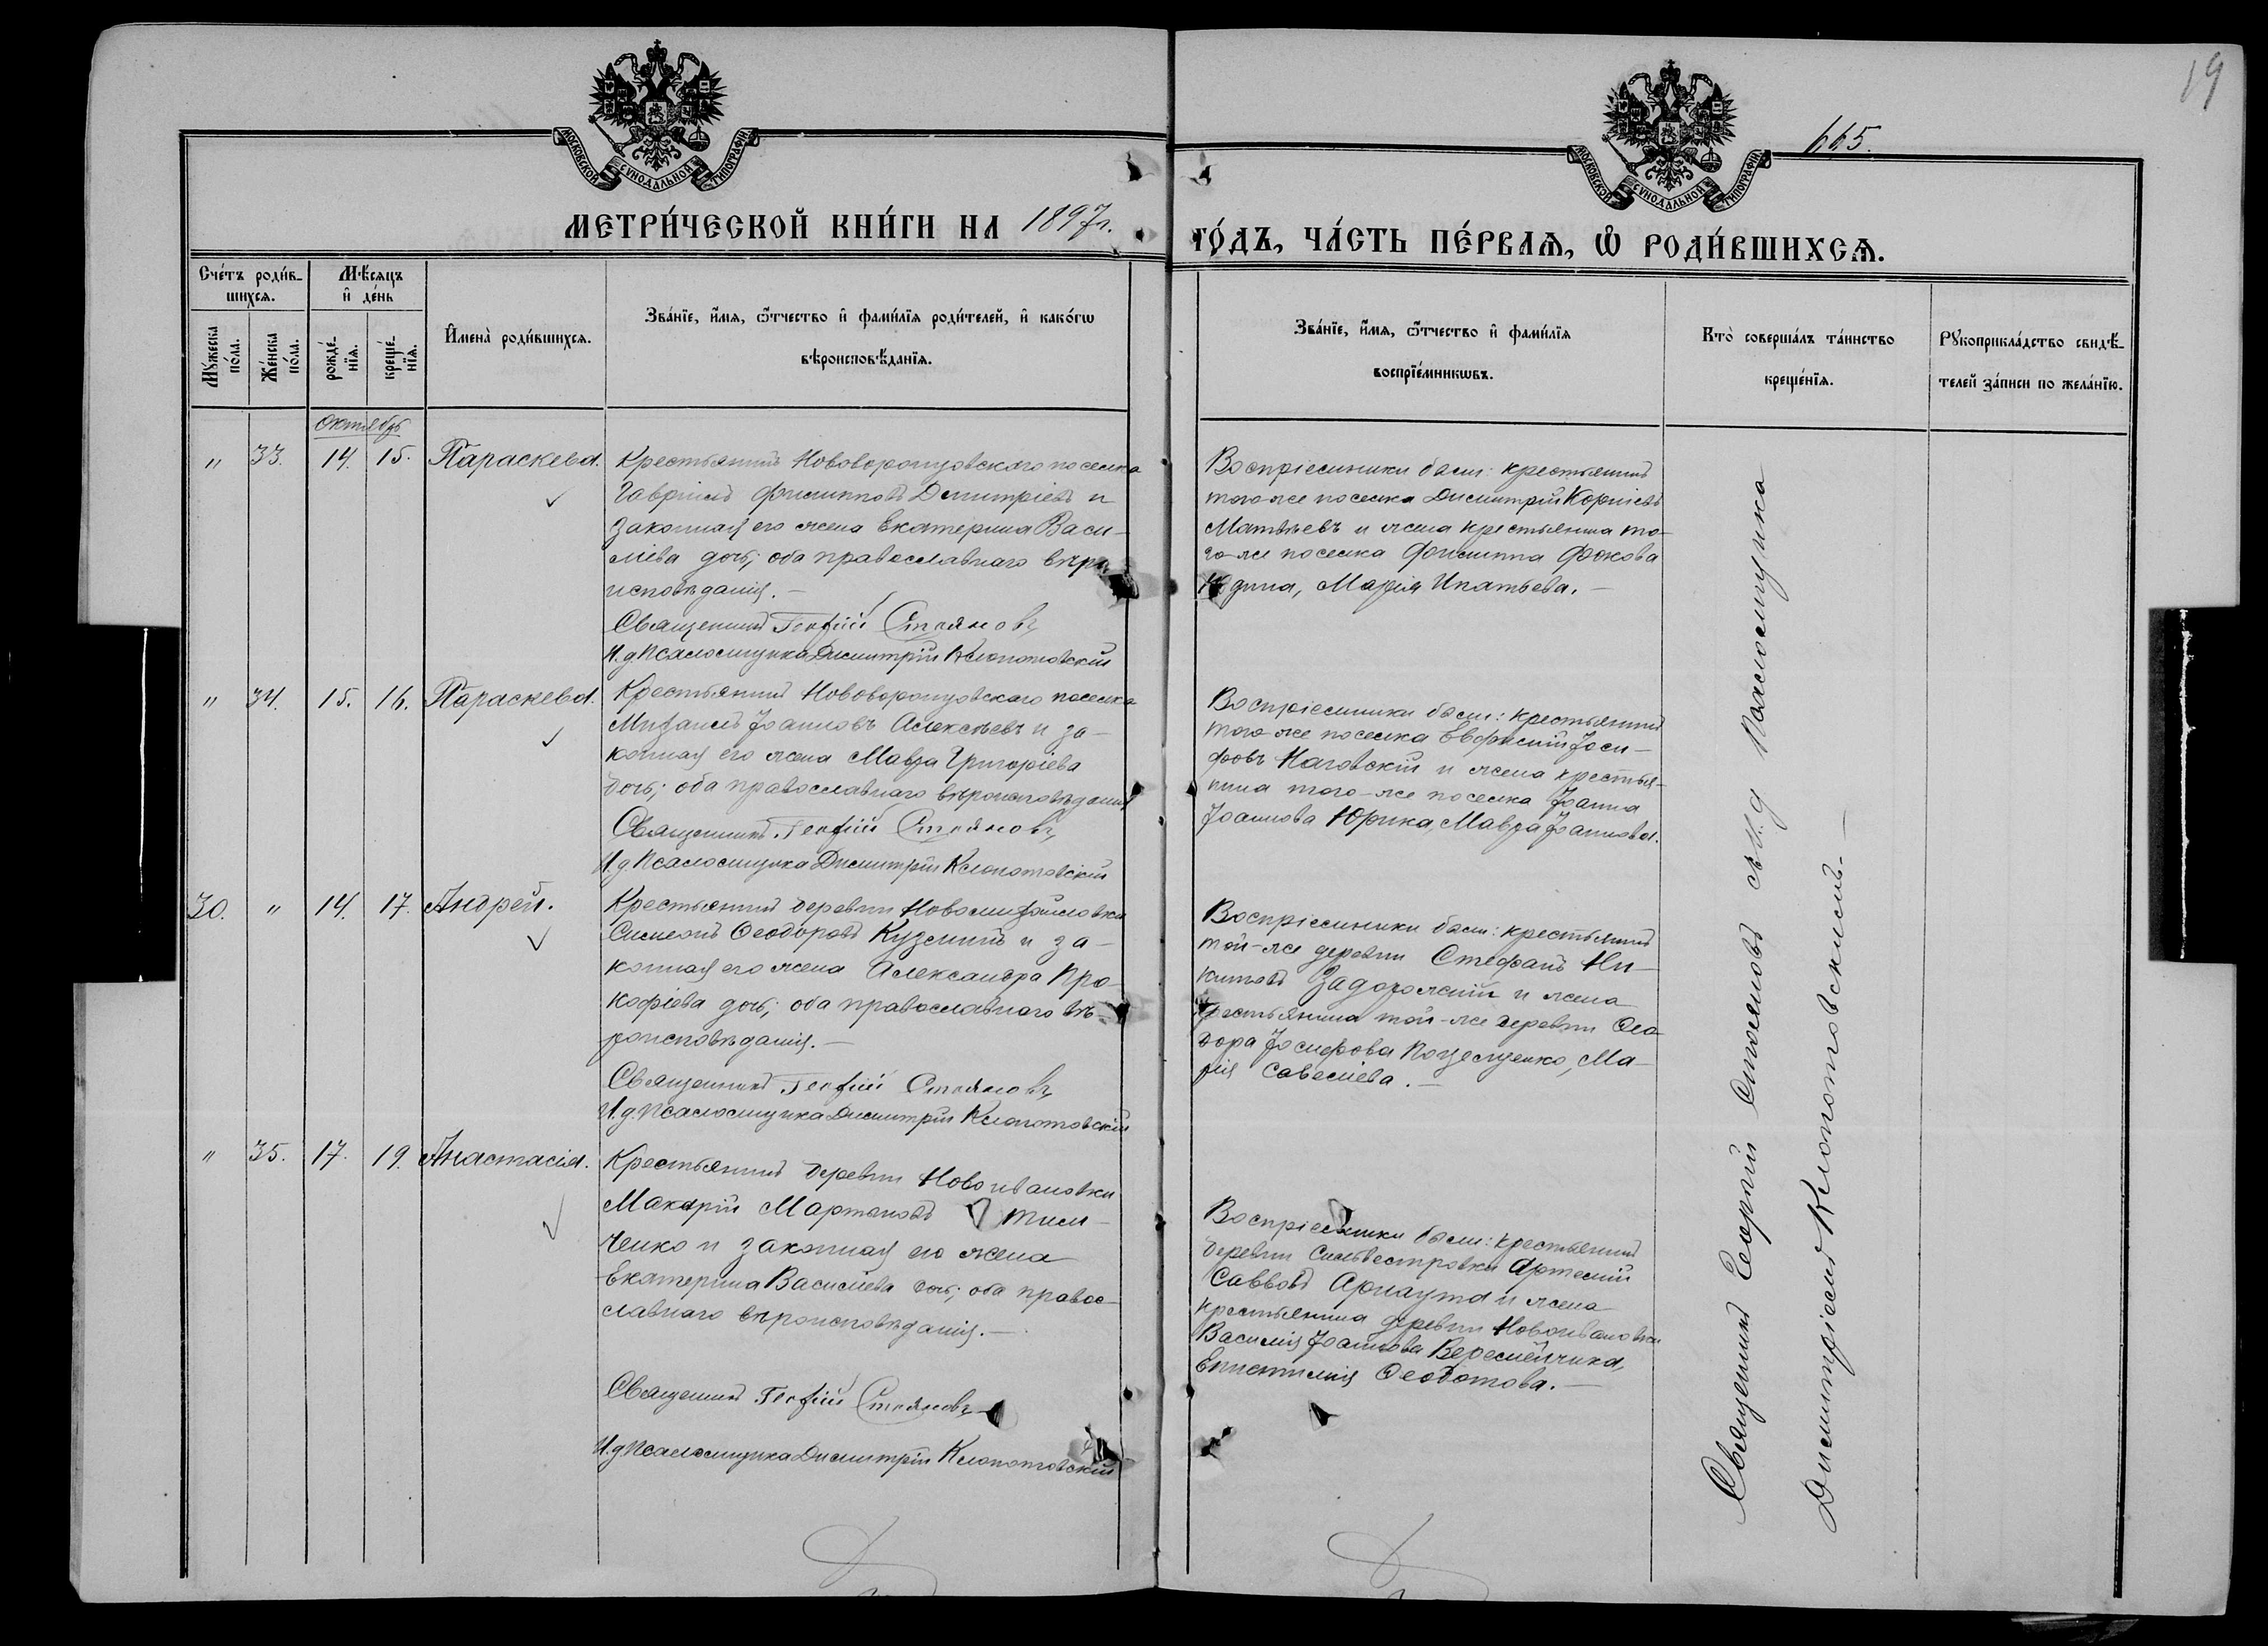 19
665.
МОСКОВСКОЙ СУНОДАЛЬНОЙ ТИПОГРАФІИ
МОСКОВСКОЙ СУНОДАЛЬНОЙ ТИПОГРАФІИ
МЕТРИ́ЧЕСКОЙ КНИ́ГИ НА 1897 г.
ГО́ДЪ, ЧА́СТЬ ПЕ́РВАѦ, Ѽ РОДИ́ВШИХСѦ.
Сче́тъ роди́в-
шихсѧ.
Мѣ́сѧцъ
и҆ де́нь
Мꙋ́жеска
по́ла.
Же́нска
по́ла.
рожде́-
нїѧ.
креще́-
нїѧ.
И҆мена̀ роди́вшихсѧ.
Зва́нїе, и҆́мѧ, ѻ҆́тчество и҆ фами́лїѧ роди́телей, и҆ како́гѡ
вѣроисповѣ́данїѧ.
Зва́нїе, и҆́мѧ, ѻ҆́тчество и҆ фами́лїѧ
воспрїе́мникѡвъ.
Кто̀ соверша́лъ та́инство
креще́нїѧ.
Рꙋкоприкла́дство свидѣ́-
телей за́писи по жела́нїю.
Октябрь
" 33. 14. 15. Параскева.
Крестьянинъ Нововоронцовскаго поселка
Гавріилъ Филипповъ Димитріевъ и
законная его жена Екатерина Васи-
ліева дочь; оба православнаго вѣро
исповѣданія. —
Священникъ Георгій Стояновъ
И.д. Псаломщика Димитрій Клопотовскій
Воспріемники были: крестьянинъ
того-же поселка Димитрій Корніевъ
Матвѣевъ и жена крестьянина то-
го-же поселка Филиппа Фокова
Марія Ипатьева. —
" 34. 15. 16. Параскева.
Крестьянинъ Нововоронцовскаго поселка
Михаилъ Іоанновъ Алексѣевъ и за-
конная его жена Мавра Григоріева
дочь; оба православнаго вѣроисповѣданія
Священникъ Георгій Стояновъ
И.д. Псаломщика Димитрій Клопотовскій
Воспріемники были: крестьянинъ
того-же поселка Евфимій Іоси-
фовъ Наговскій и жена крестья-
нина того-же поселка Іоанна
Іоаннова Юрика, Мавра Іоаннова.
30. " 14. 17. Андрей.
Крестьянинъ деревни Новомихайловки
Симеонъ Ѳеодоровъ Кузминъ и за-
конная его жена Александра Про-
кофіева дочь; оба православнаго вѣ-
роисповѣданія. —
Священникъ Георгій Стояновъ
И.д. Псаломщика Димитрій Клопотовскій
Воспріемники были: крестьянинъ
той-же деревни Стефанъ Ни-
китовъ Задорожній и жена
крестьянина той-же деревни Ѳео-
дора Іосифова Коцемченко, Ма-
рія Савеліева. —
" 35. 17. 19. Анастасія.
Крестьянинъ деревни Новоивановки
Макарій Мартиновъ Тим-
ченко и законная его жена
Екатерина Василіева дочь; оба право-
славнаго вѣроисповѣданія. —
Священникъ Георгій Стояновъ
И.д. Псаломщика Димитрій Клопотовскій
Воспріемники были: крестьянинъ
деревни Сильвестровки Артемій
Саввовъ Арнаута и жена
крестьянина деревни Новоивановки
Василія Іоаннова Веремейчика,
Епистимія Ѳеодотова. —
Священникъ Георгій Стояновъ съ И.д. Псаломщика
Димитріемъ Клопотовскимъ. —